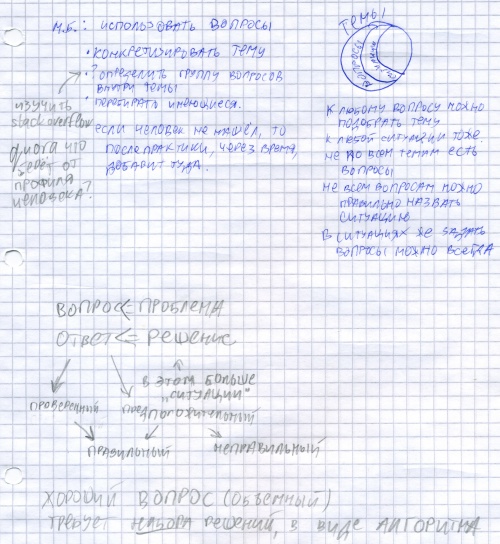 М.Б.: ИСПОЛЬЗОВАТЬ ВОПРОСЫ
• КОНКРЕТИЗИРОВАТЬ ТЕМУ
• ? ОПРЕДЕЛИТЬ ГРУППУ ВОПРОСОВ
ВНУТРИ ТЕМЫ
• ПЕРЕБИРАТЬ ИМЕЮЩИЕСЯ.
ЕСЛИ ЧЕЛОВЕК НЕ НАШЁЛ, ТО
ПОСЛЕ ПРАКТИКИ, ЧЕРЕЗ ВРЕМЯ,
ДОБАВИТ ТУДА.
ИЗУЧИТЬ
stackoverflow
ЧТО
ОТ
ПРОФИЛЯ
ЧЕЛОВЕКА?
ТЕМЫ
ВОПРОСЫ
К ЛЮБОМУ ВОПРОСУ МОЖНО
ПОДОБРАТЬ ТЕМУ
К ЛЮБОЙ СИТУАЦИИ ТОЖЕ.
НЕ ПО ВСЕМ ТЕМАМ ЕСТЬ
ВОПРОСЫ
НЕ ВСЕМ ВОПРОСАМ МОЖНО
ПРАВИЛЬНО НАЗВАТЬ
СИТУАЦИЮ
В СИТУАЦИЯХ ЖЕ ЗАДАТЬ
ВОПРОСЫ МОЖНО ВСЕГДА
ВОПРОС <= ПРОБЛЕМА
ОТВЕТ <= РЕШЕНИЕ
В ЭТОМ БОЛЬШЕ
"СИТУАЦИИ"
ПРОВЕРЕННЫЙ ПРЕДПОЛОЖИТЕЛЬНЫЙ
ПРАВИЛЬНЫЙ НЕПРАВИЛЬНЫЙ
ХОРОШИЙ ВОПРОС (ОБЪЕМНЫЙ)
ТРЕБУЕТ НАБОРА РЕШЕНИЙ, В ВИДЕ АЛГОРИТМА